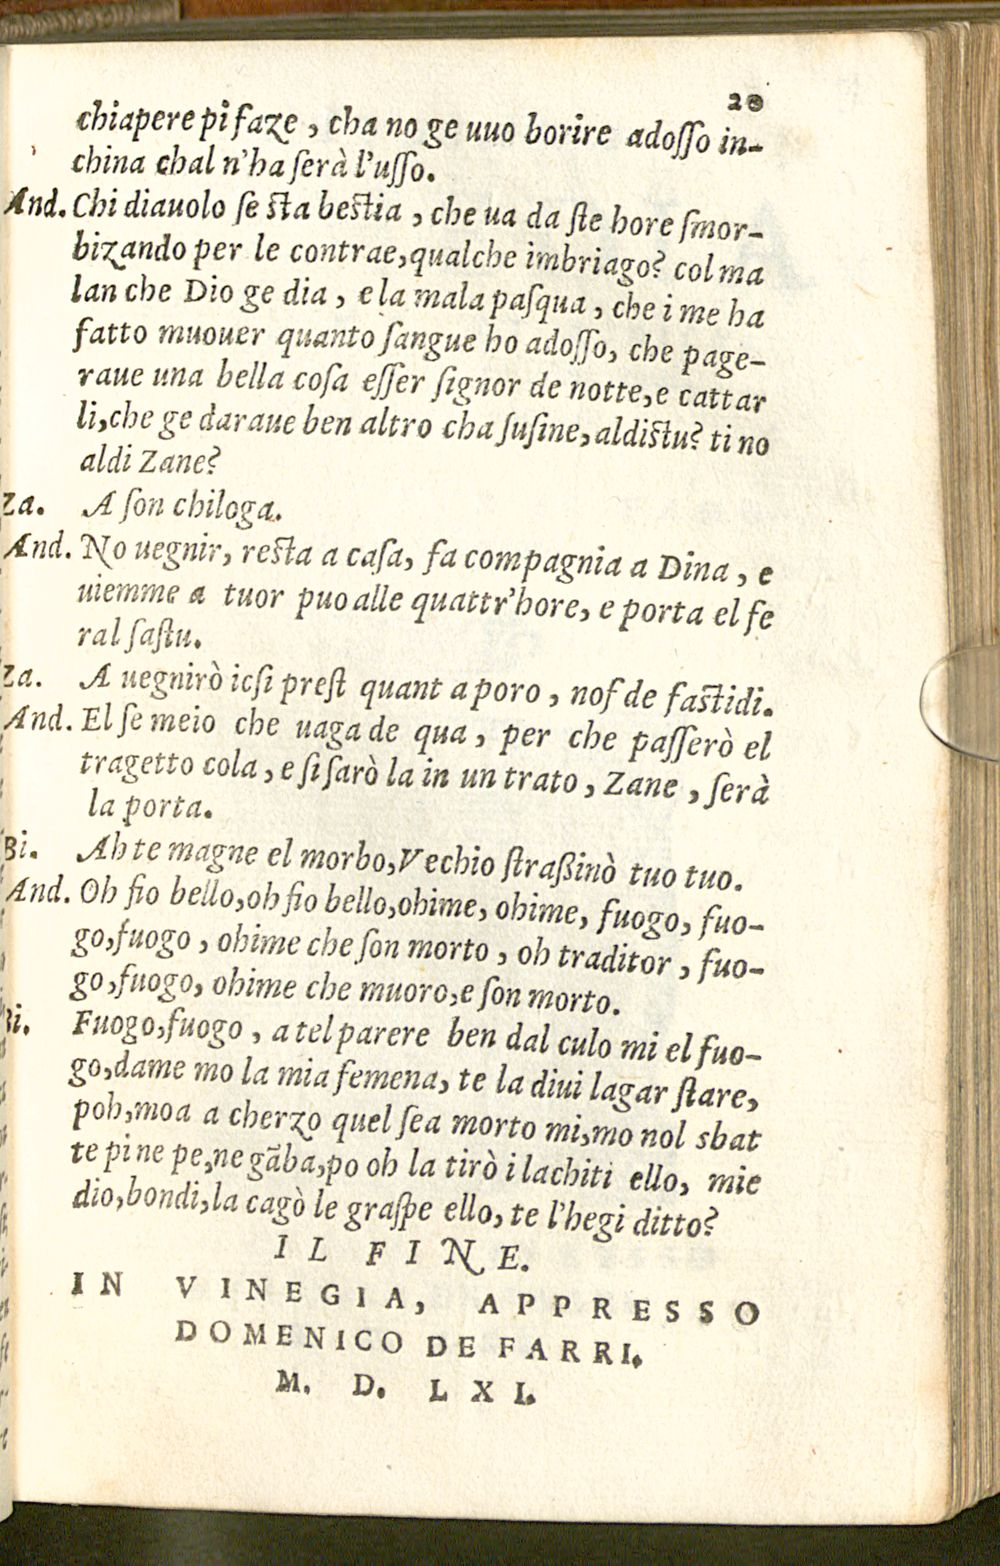 20
chiapere pi faze, cha no ge uuo borire adoſſo in-
china chal n'ha ſerà l'uſſo.
And. Chi diauolo ſe ſta beſtia, che ua da ſte hore ſmor-
bizando per le contrae, qualche imbriago? col ma
lan che Dio ge dia, e la mala paſqua, che i me ha
fatto muouer quanto ſangue ho adoſſo, che page-
raue una bella coſa eſſer ſignor de notte, e cattar
li, che ge daraue ben altro cha ſuſine, aldiſtu? ti no
aldi Zane?
Za. A ſon chiloga.
And. No uegnir, reſta a caſa, fa compagnia a Dina, e
uiemme a tuor puo alle quattr'hore, e porta el fe
ral ſaſtu.
Za. A uegnirò icſi preſt quant a poro, nof de faſtidi.
And. El ſe meio che uaga de qua, per che paſſerò el
tragetto cola, e ſi ſarò la in un trato, Zane, ſerà
la porta.
Bi. Ah te magne el morbo, Vechio ſtraßinò tuo tuo.
And. Oh fio bello, oh fio bello, ohime, ohime, fuogo, fuo-
go, fuogo, ohime che ſon morto, oh traditor, fuo-
go, fuogo, ohime che muoro, e ſon morto.
Bi. Fuogo, fuogo, a tel parere ben dal culo mi el fuo-
go, dame mo la mia femena, te la diui lagar ſtare,
poh, moa a cherzo quel ſea morto mi, mo nol sbat
te pi ne pe, ne gãba, po oh la tirò i lachiti ello, mie
dio, bondi, la cagò le graſpe ello, te l'hegi ditto?
IL FINE.
IN VINEGIA, APPRESSO
DOMENICO DE FARRI.
M. D. LXI.